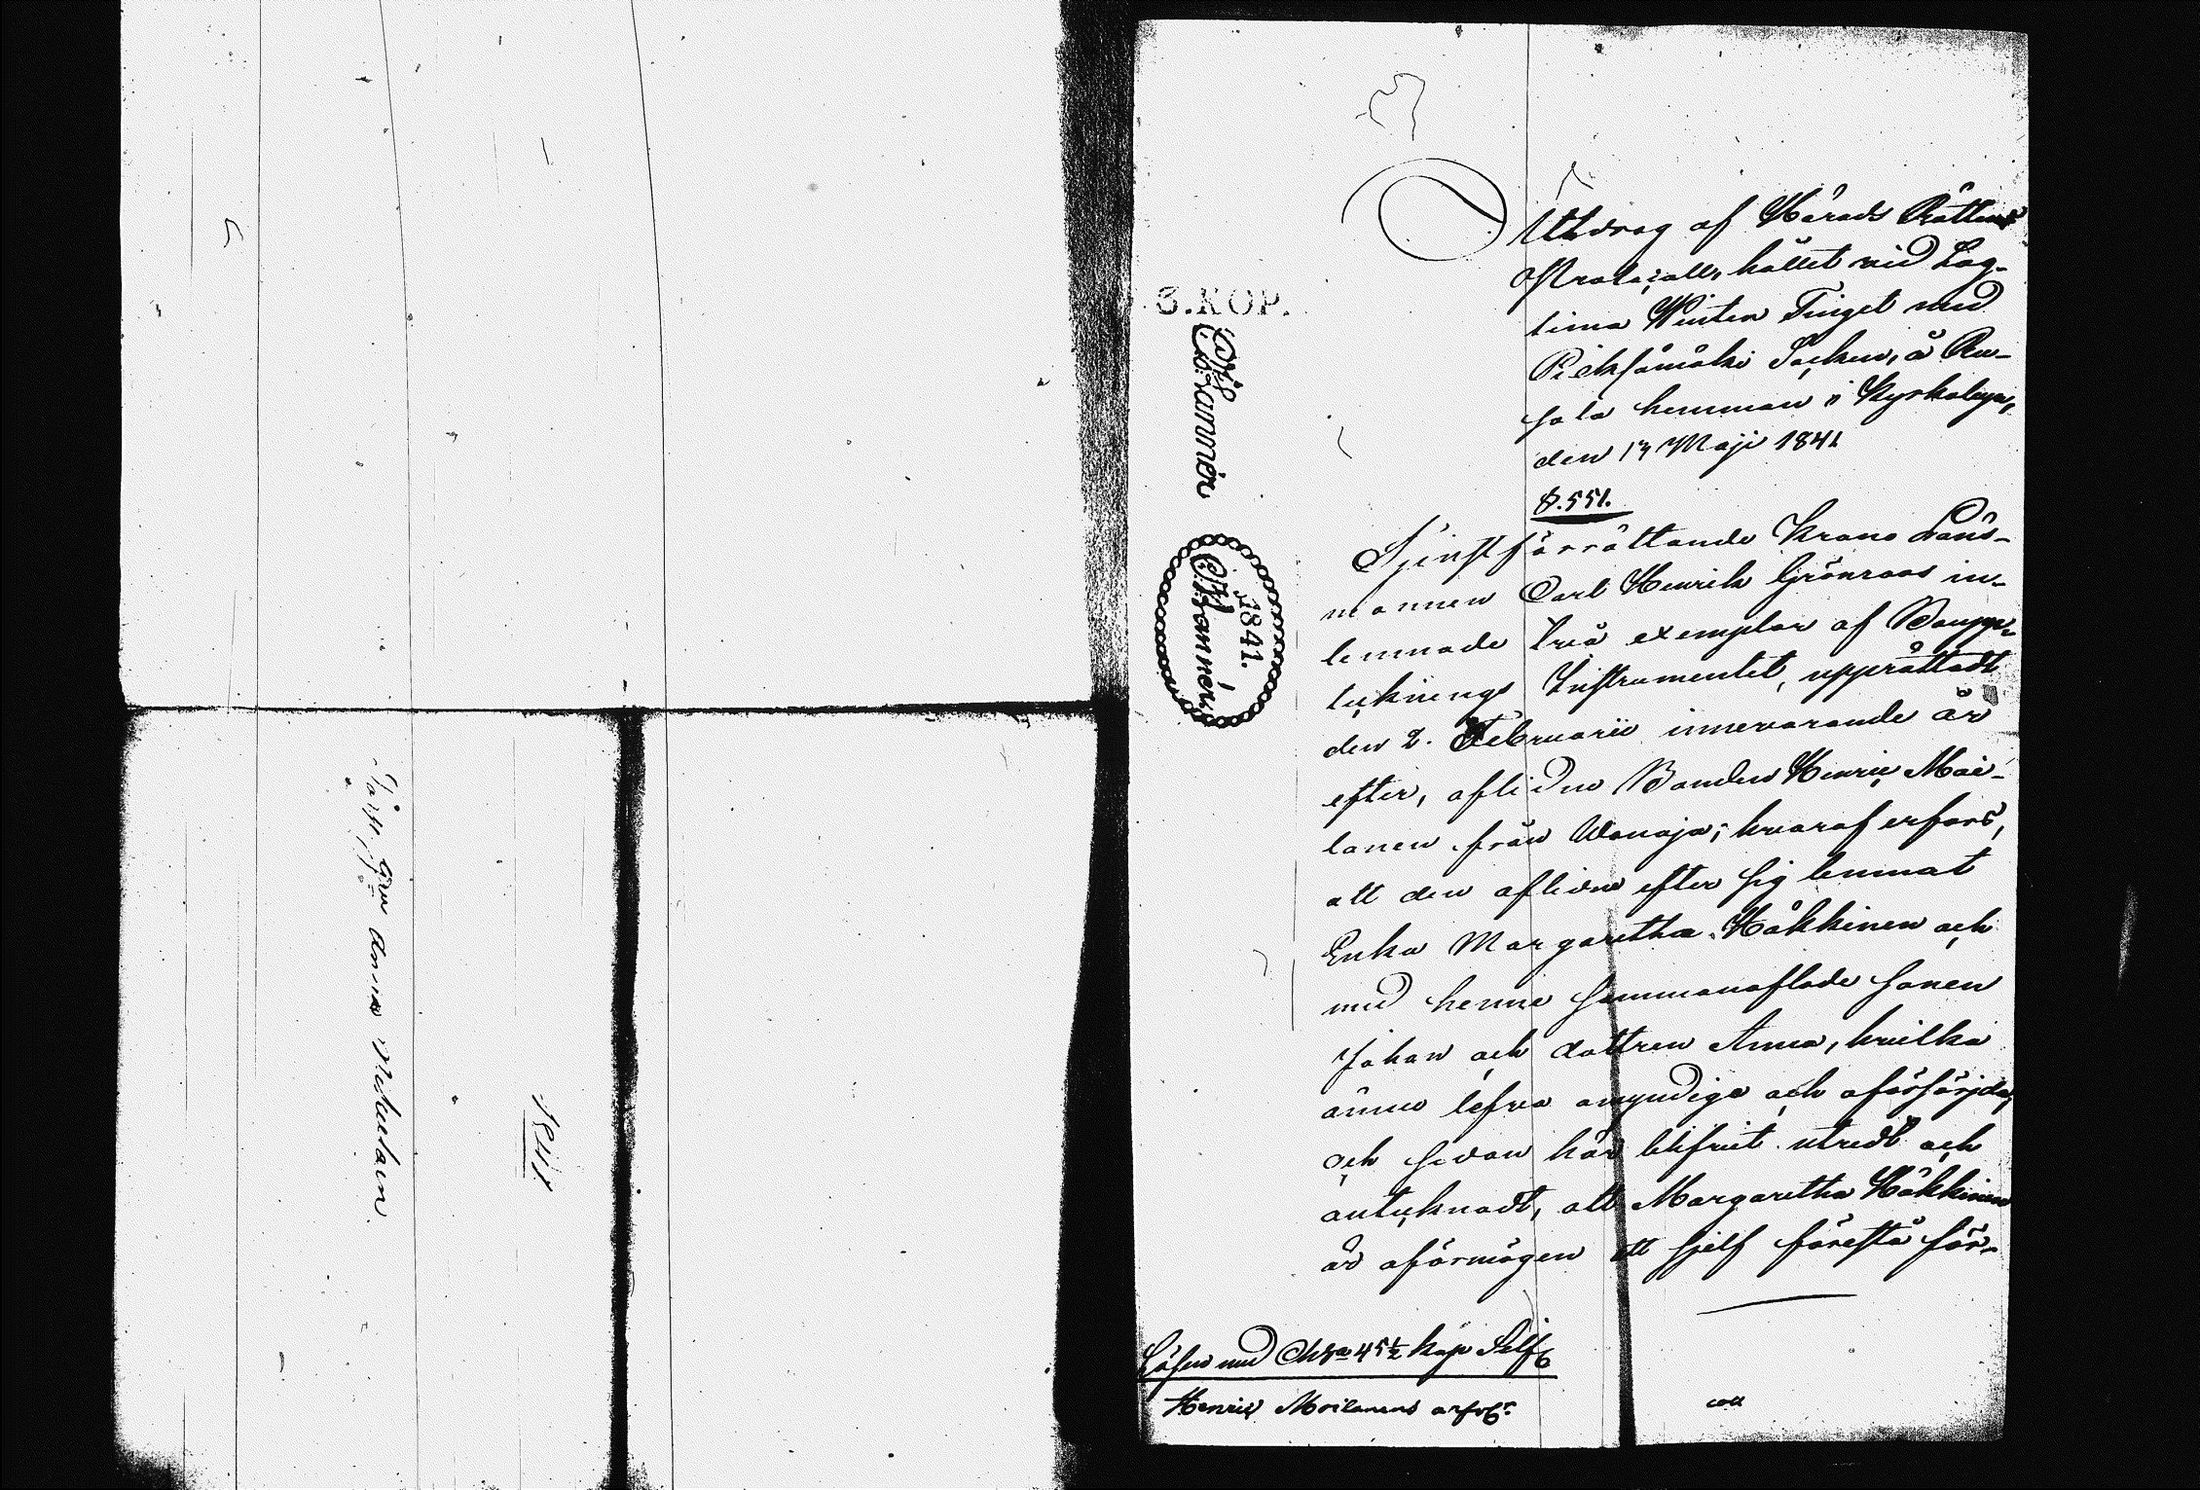 Utdrag af Härads Rättens
Protocoll, hållet vid Lag-
tima Winter Tinget med
Pieksämäki Socken, å Ru-
hala hemman i Kyrkobyn,
den 17 Maji 1841
§. 551.
Tjenstförrättande Krono Läns-
mannen Carl Henrik Grönroos in-
lemnade två exemplar af Bouppe-
teknings Instrumentet, upprättadt
den 2. Februarii innevarande år
efter, aflidne Bonden Henric Moi-
lanen från Wanaja; hvaraf erfors,
att den aflidne efter sig lemnat
Enka Margaretha Häkkinen och
med henne sammanaflade sonen
Johan och dottren Anna, hvilka
ännu lefva omyndige och oförsörjda,
och sedan här blifvit utredt och
antecknadt, att Margaretha Häkkinen
är oförmögen att sjelf förestå för-
Lösen med 45½ kop Silf
Henric Moilanens arfv:r
coll
3.KOP.
Chart. Sig.
1841.
Anna
1841